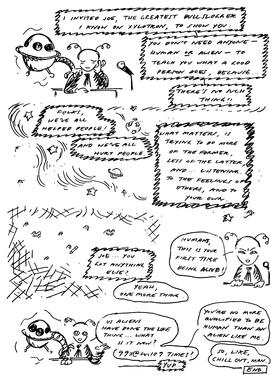 I INVITED JOE, THE GREATEST
I KNOW ON XYLOTRON, TO SHOW YOU:
YOU DON'T NEED ANYONE—
HUMAN OR ALIEN — TO
TEACH YOU WHAT A GOOD
PERSON DOES, BECAUSE
THERE'S NO SUCH
THING!!
FOLKS,
WE'VE ALL
HELPED PEOPLE!
AND WE'VE ALL
HURT PEOPLE
WHAT MATTERS, IS
TRYING TO DO MORE
OF THE FORMER,
LESS OF THE LATTER,
AND ... LISTENING
TO THE FEELINGS OF
OTHERS, AND TO
YOUR OWN
JOE... YOU
GOT ANYTHING
ELSE?
YEAH,
ONE MORE THING
HUMANS,
THIS IS YOUR
FIRST TIME
BEING ALIVE!
US ALIENS
HAVE DONE THE LIFE
THING ... WHAT
IS IT NOW?
TIMES!
YUP
YOU'RE NO MORE
QUALIFIED TO BE
HUMAN THAN AN
ALIEN LIKE ME.
SO, LIKE,
CHILL OUT, MAN.
END